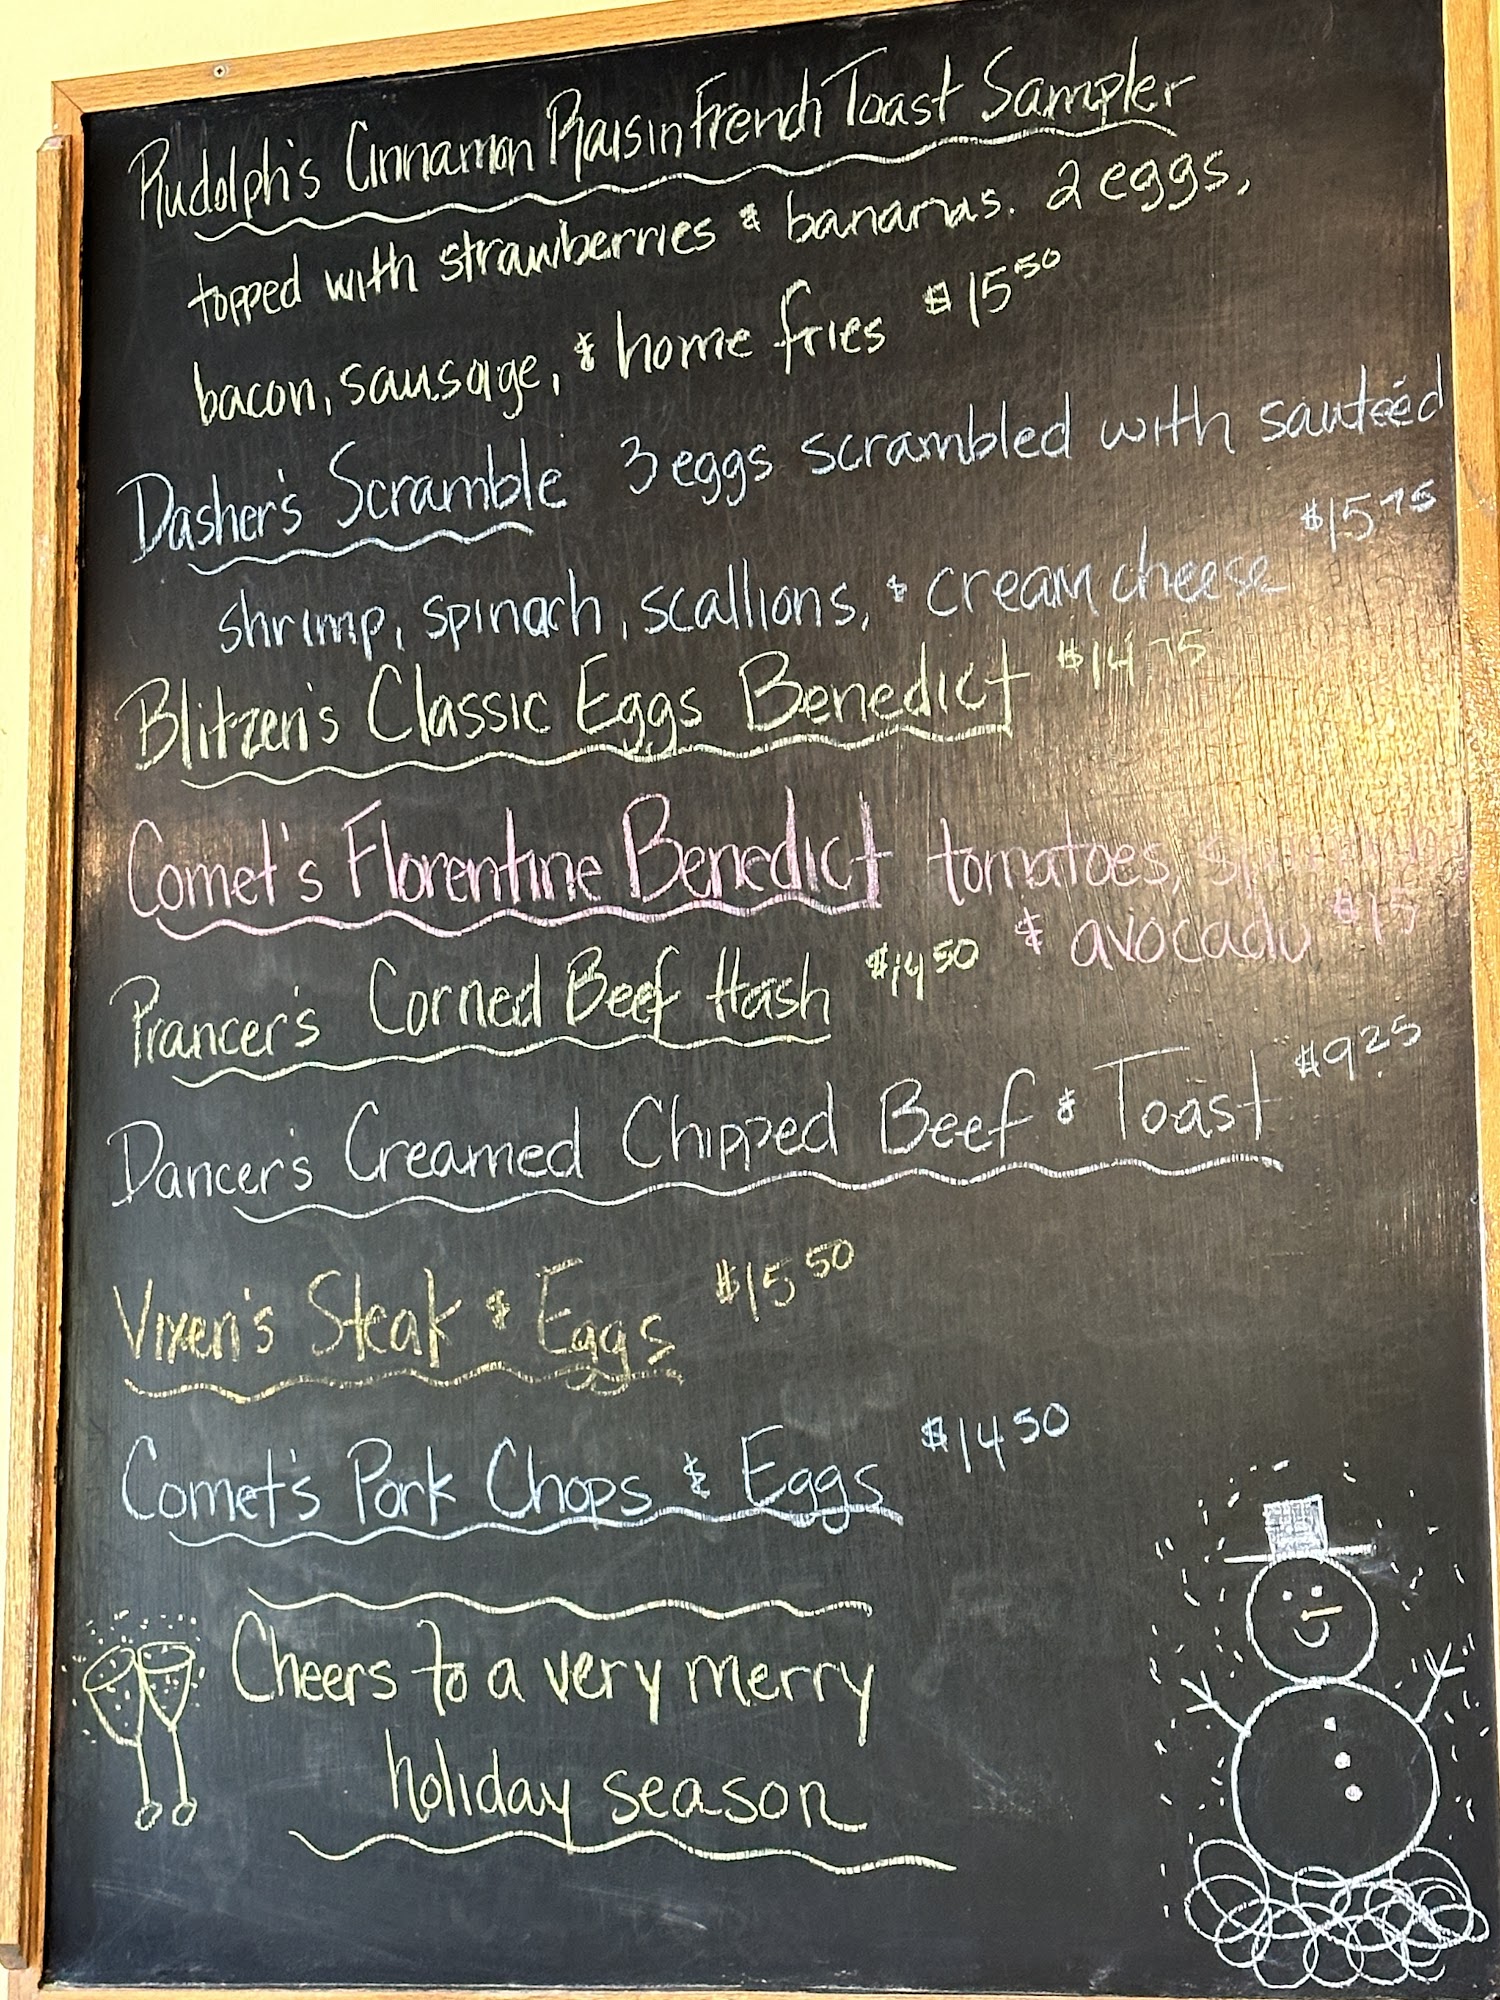 Rudolph's Cinnamon Raisin French Toast Sampler
topped with strawberries & bananas. 2 eggs,
bacon, sausage, & home fries $15.50
Dasher's Scramble 3 eggs scrambled with sauteéd
shrimp, spinach, scallions, & cream cheese $15.75
Blitzen's Classic Eggs Benedict $14.75
Comet's Florentine Benedict tomatoes,
& avocado $15
Prancer's Corned Beef Hash $14.50
Dancer's Creamed Chipped Beef & Toast $9.25
Vixen's Steak & Eggs $15.50
Comet's Pork Chops & Eggs $14.50
Cheers to a very merry
holiday season